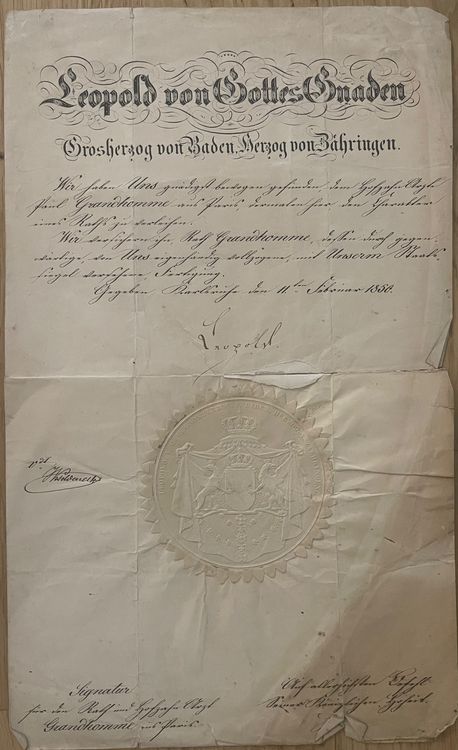 Leopold von Gottes Gnaden
Grosherzog von Baden, Herzog von Zähringen.
Wir haben Uns gnädigst bewogen gefunden dem Hofzahn Arzte
Paul Grandhomme aus Paris dermalen hier den Charakter
eines Raths zu verleihen.
Wir versichern ihn Rath Grandhomme, dessen durch gegen-
wärtige von Uns eigenhändig vollzogene, mit Unserm Staats-
siegel versehene Fertigung.
Gegeben Karlsruhe den 11ten Februar 1850.
Leopold.
vdt
Signatur
für den Rath und Hofzahn Arzt
Grandhomme aus Paris
Auf allerhöchsten Befehl
Seiner Königlichen Hoheit.